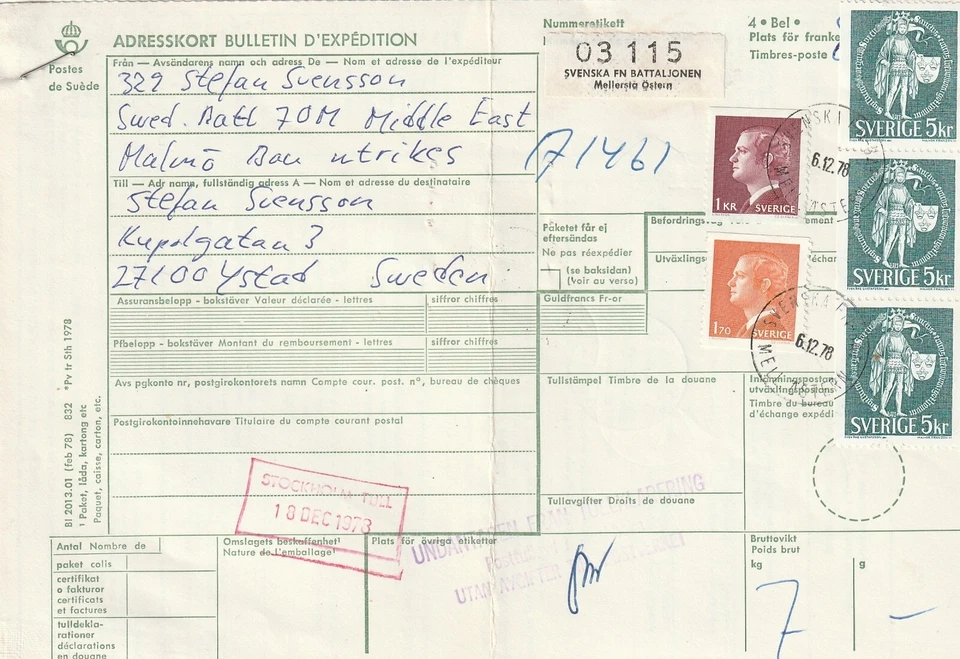 ADRESSKORT BULLETIN D'EXPÉDITION
Postes
de Suède
Från — Avsändarens namn och adress De — Nom et adresse de l'expéditeur
329 Stefan Svensson
Swed. Batt 70M Middle East
Malmö Ban utrikes
Till — Adr namn, fullständig adress A — Nom et adresse du destinataire
Stefan Svensson
27100 Ystad Sweden
Nummeretikett
03 115
SVENSKA FN BATTALJONEN
Mellersta Östern
4 • Bel •
Plats för franke
Timbres-poste
SVERIGE 5kr
SVERIGE 5kr
SVERIGE 5kr
1 KR SVERIGE
1 70 SVERIGE
6.12.78
6.12.78
Paketet får ej
eftersändas
Ne pas réexpédier
(se baksidan)
(Voir au verso)
Guldfrancs Fr-or
Assuransbelopp - bokstäver Valeur déclarée - lettres
siffror chiffres
Pfbelopp - bokstäver Montant du remboursement - lettres
siffror chiffres
Avs pgkonto nr, postgirokontorets namn Compte cour. post. n°, bureau de chèques
Postgirokontoinnehavare Titulaire du compte courant postal
Tullstämpel Timbre de la douane
Inlämningspostan
utväxlingspostans
Timbre du bureau
d'échange expédi
Tullavgifter Droits de douane
STOCKHOLM TULL
18 DEC 1978
BI 2013.01 (feb 78) 832 *Pv tr Sth 1978
1 Paket, låda, kartong etc
Paquet, caisse, carton, etc.
Antal Nombre de
paket colis
certifikat
o fakturor
certificats
et factures
tulldekla-
rationer
déclarations
en douane
Omslagets beskaffenhet
Nature de l'emballage
Plats för övriga etiketter
Bruttovikt
Poids brut
kg
g
7 —